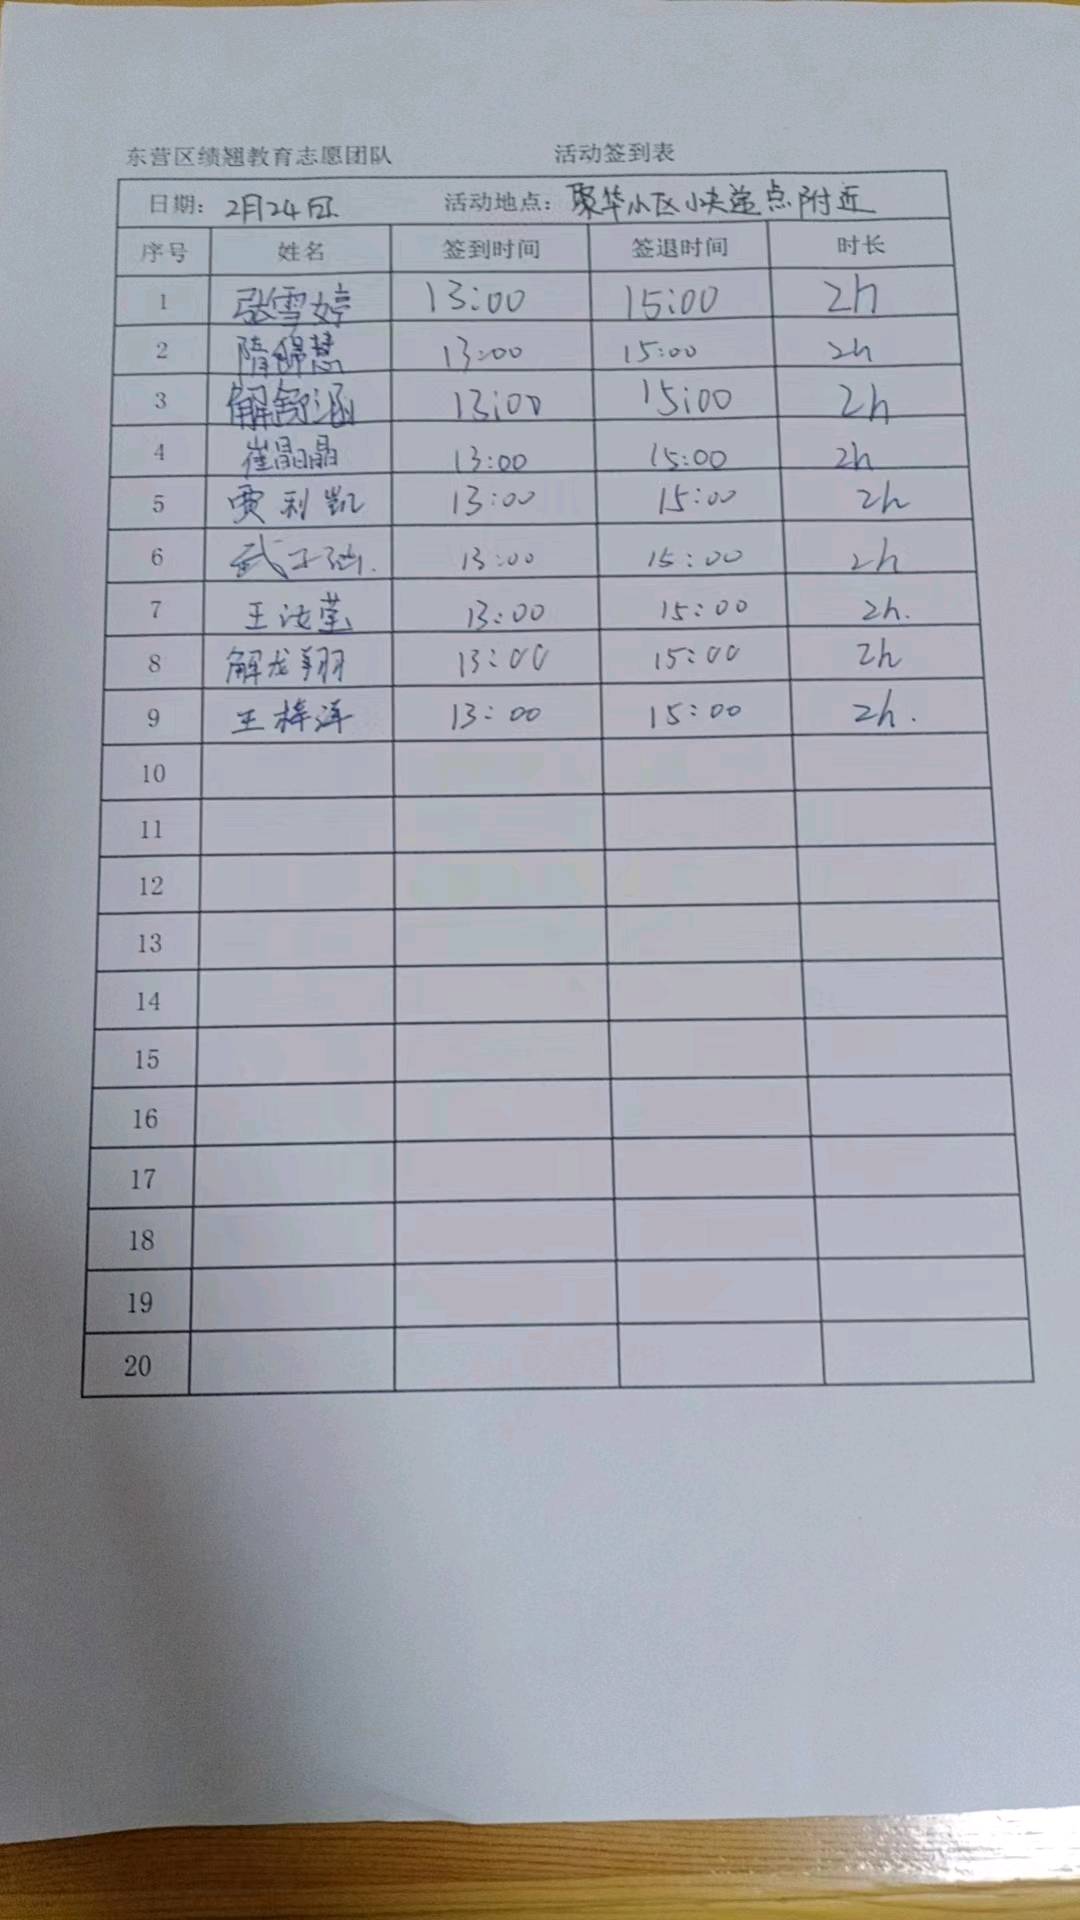 东营区绩翘教育志愿团队 活动签到表
日期: 2月24日 活动地点: 聚华小区小快递点附近
序号 姓名 签到时间 签退时间 时长
1 张雪婷 13:00 15:00 2h
2 隋锦慧 13:00 15:00 2h
3 解舒涵 13:00 15:00 2h
4 崔晶晶 13:00 15:00 2h
5 贾利凯 13:00 15:00 2h
6 13:00 15:00 2h
7 13:00 15:00 2h.
8 解龙翔 13:00 15:00 2h
9 王梓洋 13:00 15:00 2h.
10
11
12
13
14
15
16
17
18
19
20